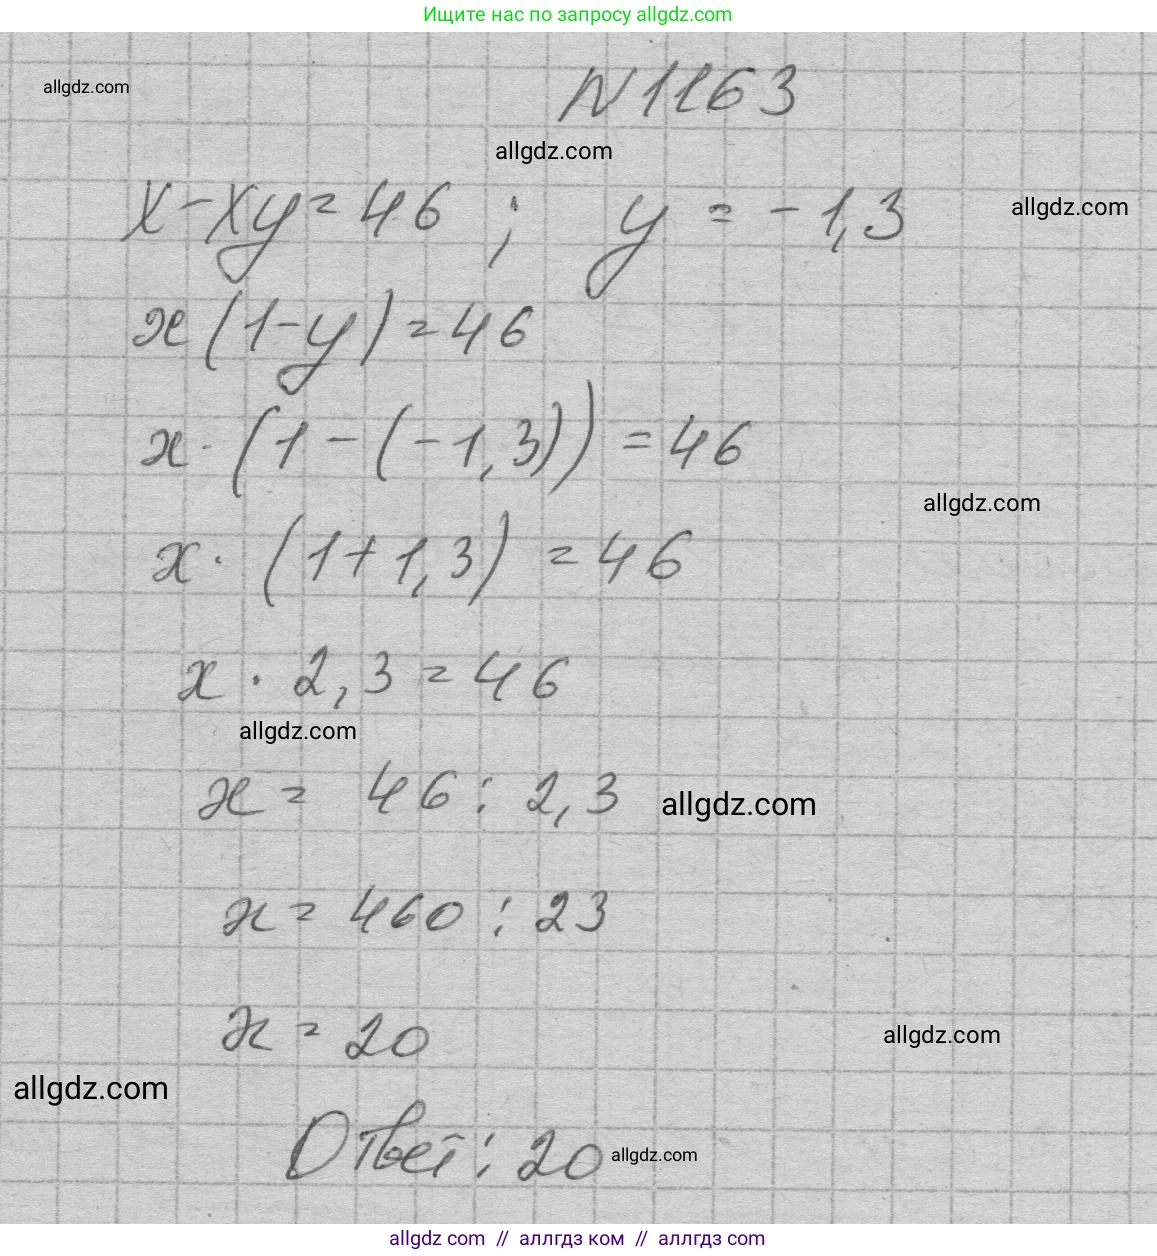 Ищите нас по запросу allgdz.com
allgdz.com
N 1163
allgdz.com
x - xy = 46 ; y = -1,3
allgdz.com
x (1 - y) = 46
x · (1 - (-1,3)) = 46
allgdz.com
x · (1 + 1,3) = 46
x · 2,3 = 46
allgdz.com
x = 46 : 2,3
allgdz.com
x = 460 : 23
x = 20
allgdz.com
allgdz.com
Ответ: 20
allgdz.com
allgdz com // аллгдз ком // allгдз com